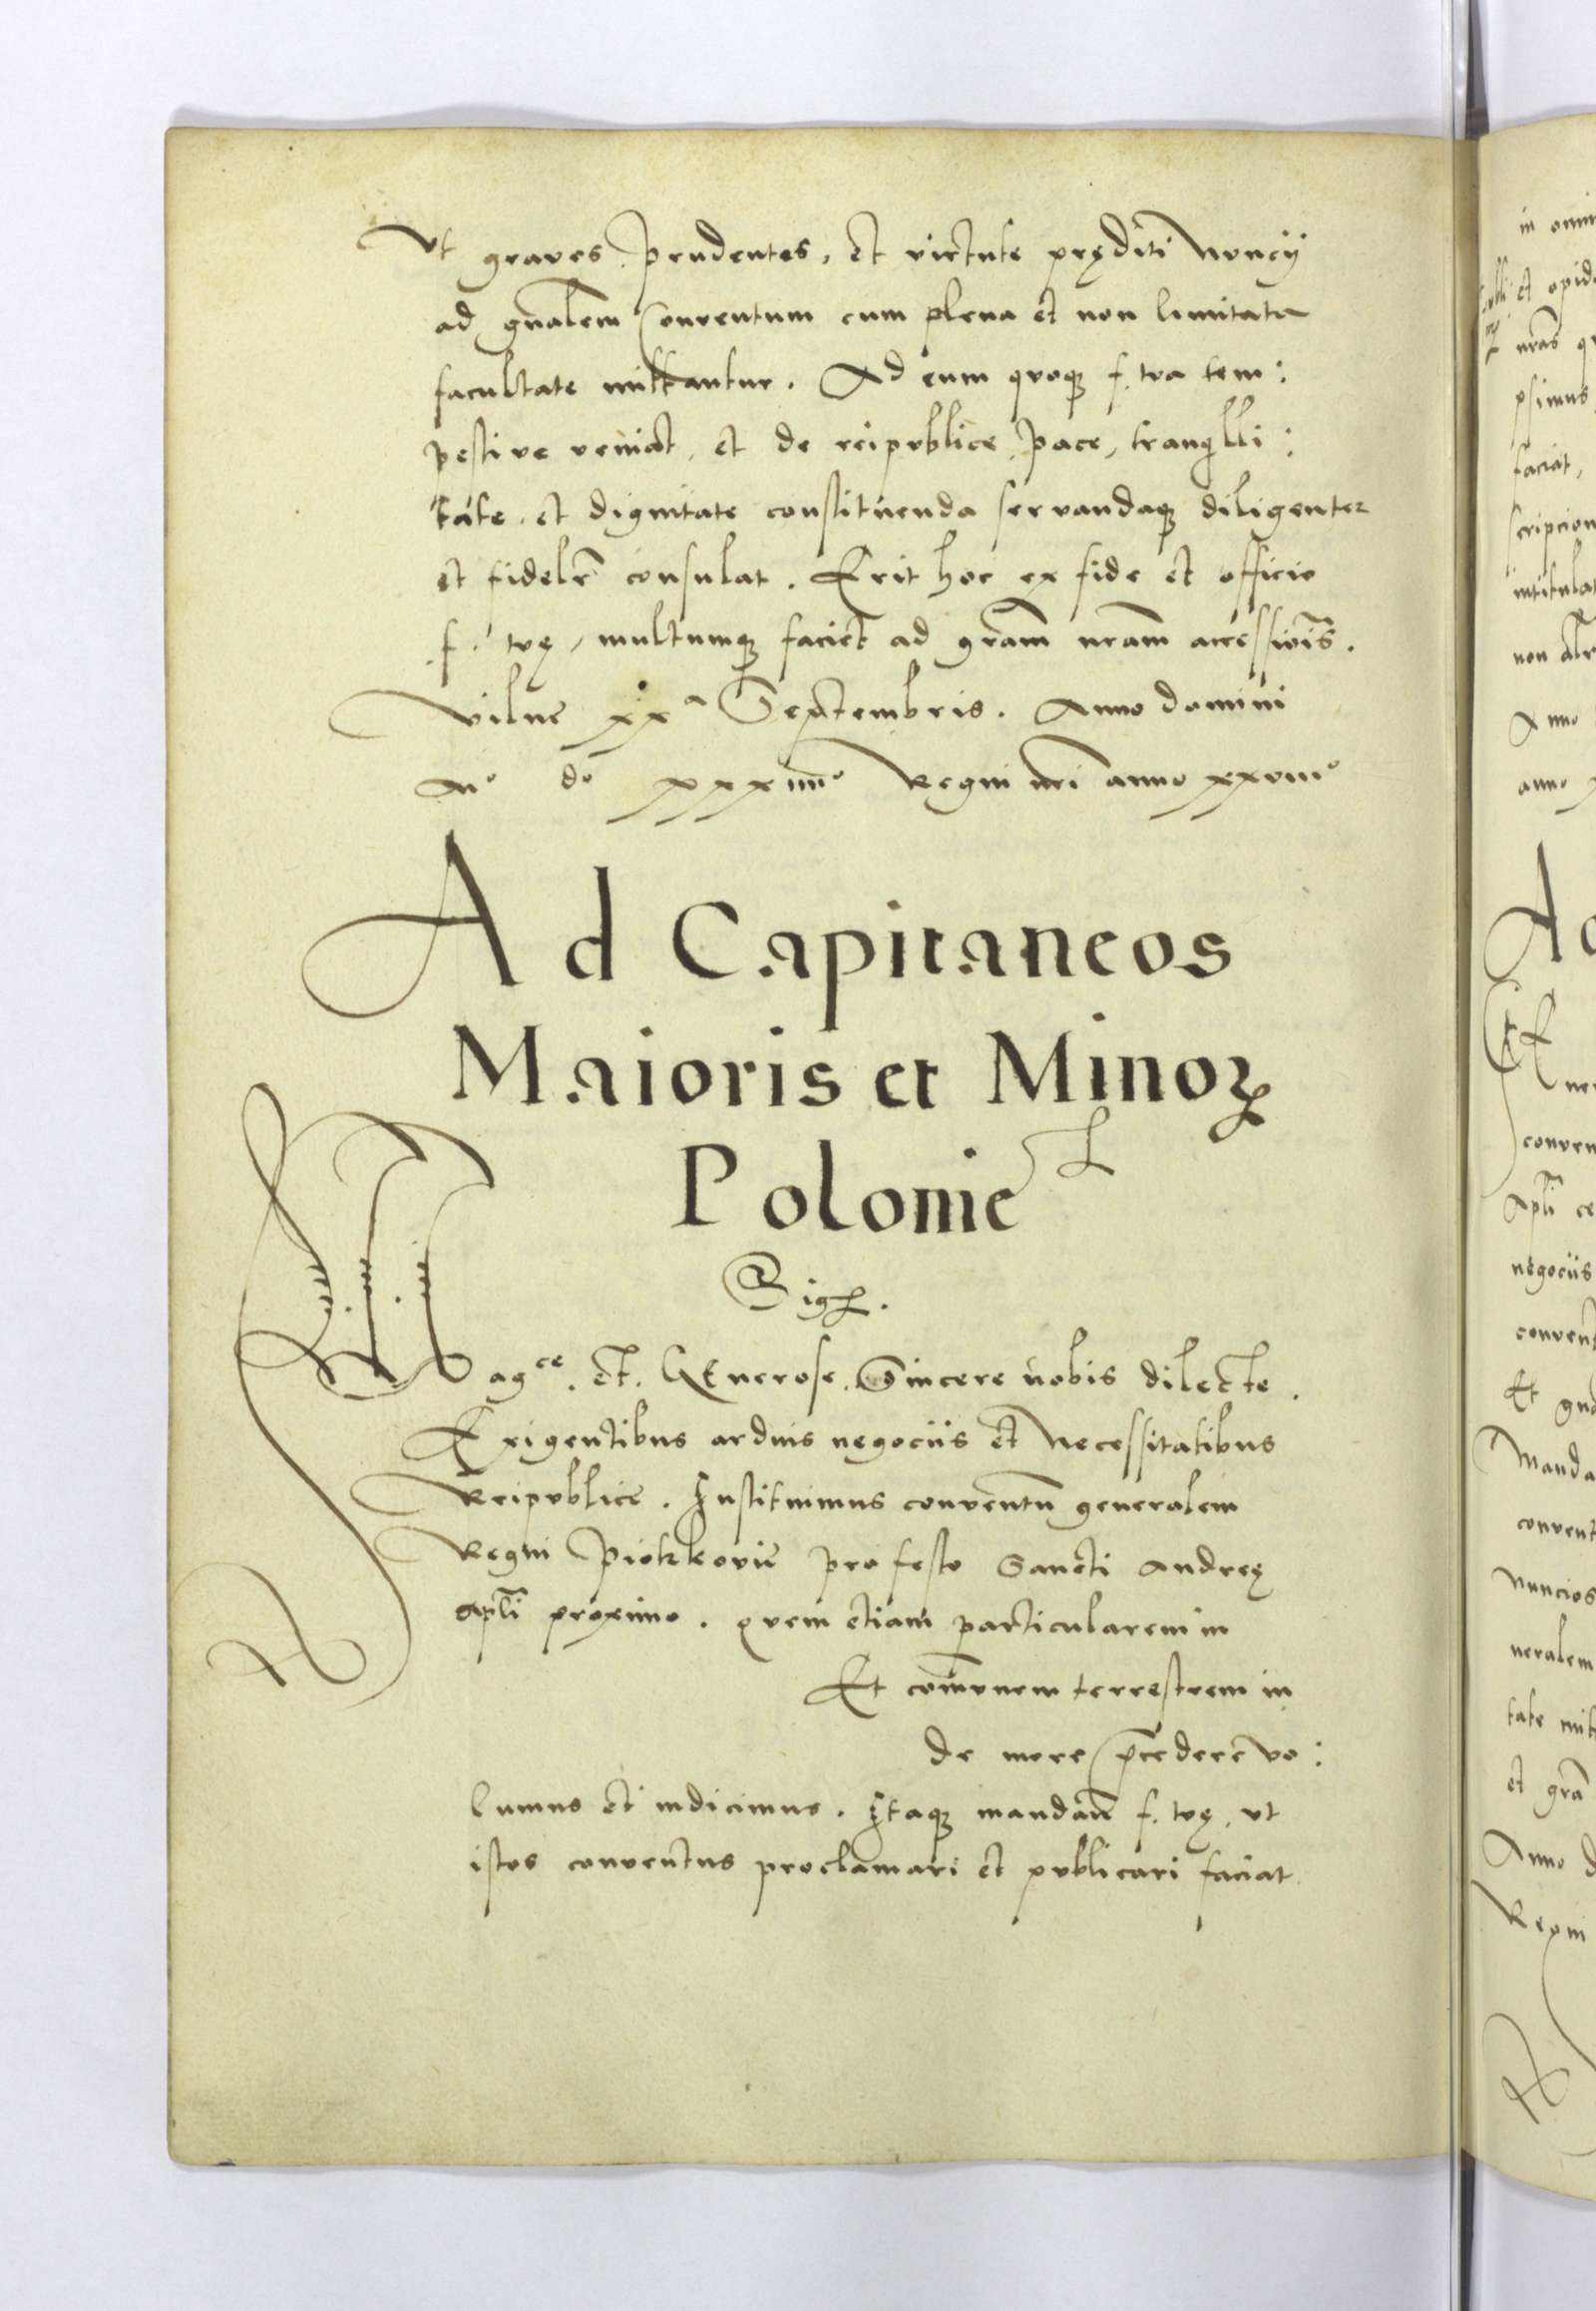 Vt graves prudentes, et virtute pręditi Nvncij
ad gnalem Conventum cum plena et non limitata
facultate mittantur. Ad eum qvoqȝ f. tva tem:
pestive veniat, et de reipvblice pace, tranqlli:
tate, et dignitate constitvenda servandaqȝ diligenter
et fidelr consulat. Erit hoc ex fide et officio
f. tvę, multumqȝ faciet ad gram nram accessiōis.
Vilne xxª Septembris. Anno domini
Mº dº xxxiiiiº Regni nri anno xxviiiº
Ad Capitaneos
Maioris et Minoꝝ
Polonie
Sigꝭ.
Magce. et. GEnerose. Sincere nobis dilecte.
Exigentibus arduis negociis et Necessitatibus
Reipvblice. Instituimus conventū generalem
Regni Piotrkovie pro festo Sancti Andreę
Apli proximo. qvem etiam particularem in
Et com̄vnem terrestrem in
de more p̄cedere vo:
lumus et indicimus. Itaqȝ mandam̄ f. tvę, vt
istos conventus proclamari et pvblicari faciat.
in omni
et opid
nras q
psimus
faciat,
scripcion
intitulat
non alr
Anno
anno x
Ad
conven
Apli ce
negociis
convent
Et gna
Manda
convent
Nuncios
neralem
tate mit
et gra
Anno d
Regni